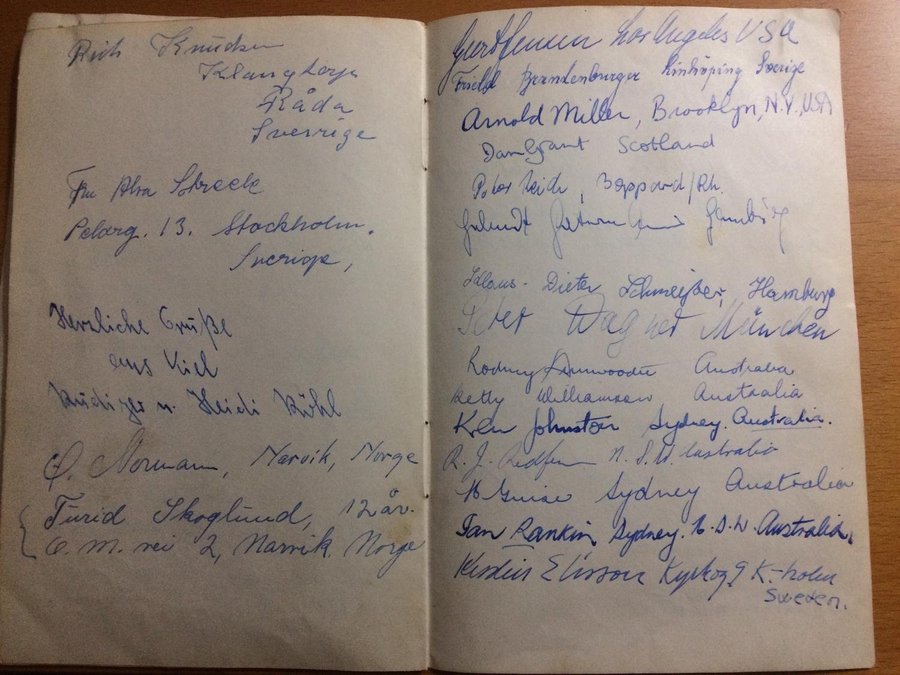 Knudsen
Råda
Sverige
Fru Alva Streck
Pelarg. 13. Stockholm.
Sverige,
Herzliche Grüße
aus Kiel
Rüdiger u. Heidi Röhl
O. Normann, Narvik, Norge
Turid Skoglund, 12 år.
O.m. vei 2, Narvik. Norge
Los Angeles USA
Brandenburger Linköping Sverige
Arnold Miller, Brooklyn, N.Y., USA
Dan Grant Scotland
Peter Reich, Boppard/Rh.
Hamburg
Klaus-Dieter Schmeißer, Hamburg
Peter Wagner München
Rodney Dunwoodie Australia
Betty Williamson Australia
Ken Johnston Sydney. Australia.
R. J. Redfern N.S.W. Australia
Guise Sydney Australia
Ian Rankin Sydney. N.S.W. Australia.
Kerstin Elisson K-holm
Sweden.